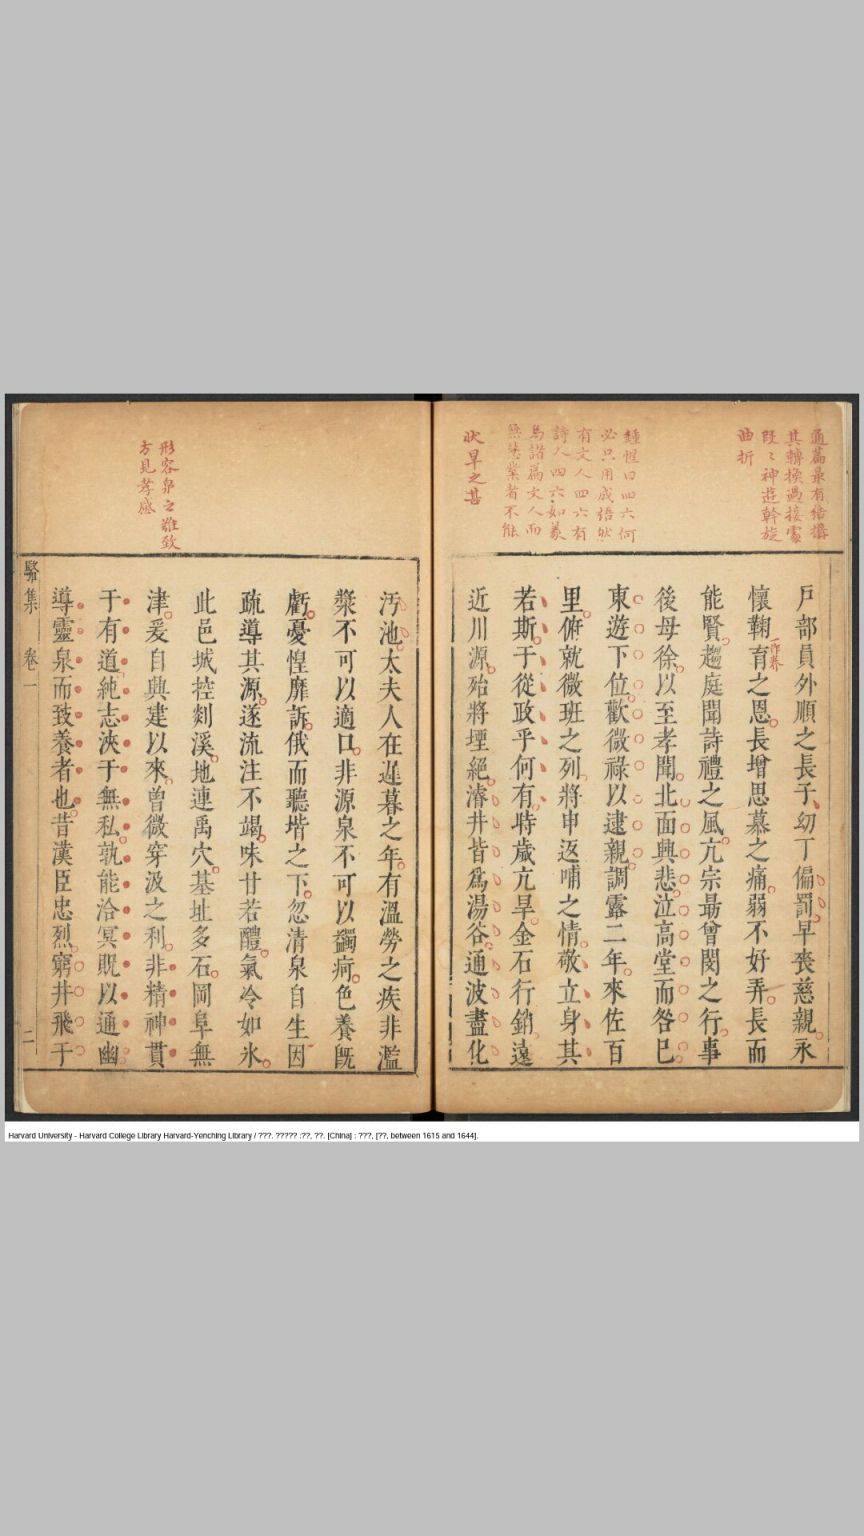 通篇最有結搆
其轉換過接處
段〻神遊幹旋
曲折
鍾惺曰四六何
必只用成語然
有文人四六有
詩人四六如義
烏諸篇文人而
無詩業者不能
狀旱之甚
戶部員外順之長子幼丁偏罰早喪慈親永
懷鞠育之恩長增思慕之痛弱不好弄長而
一作養
能賢趨庭聞詩禮之風亢宗最曾閔之行事
後母徐以至孝聞北面興悲泣高堂而咎巳
東遊下位歡微祿以逮親調露二年來佐百
里俯就微班之列將申返哺之情敬立身其
若斯于從政乎何有時歲亢旱金石行銷遠
近川源殆將堙絕濬井皆爲湯谷通波盡化
形容泉之難致
方見孝感
汚池太夫人在遲暮之年有溫勞之疾非濫
漿不可以適口非源泉不可以蠲痾色養旣
虧憂惶靡訴俄而聽堦之下忽清泉自生因
疏導其源遂流注不竭味甘若醴氣冷如氷
此邑城控剡溪地連禹穴基址多石岡阜無
津爰自興建以來曾微穿汲之利非精神貫
于有道純志浹于無私孰能洽冥貺以通幽
導靈泉而致養者也昔漢臣忠烈窮井飛于
集 卷一 二
Harvard University - Harvard College Library Harvard-Yenching Library / ???. ????? :??, ??. [China] : ???, [??, between 1615 and 1644].